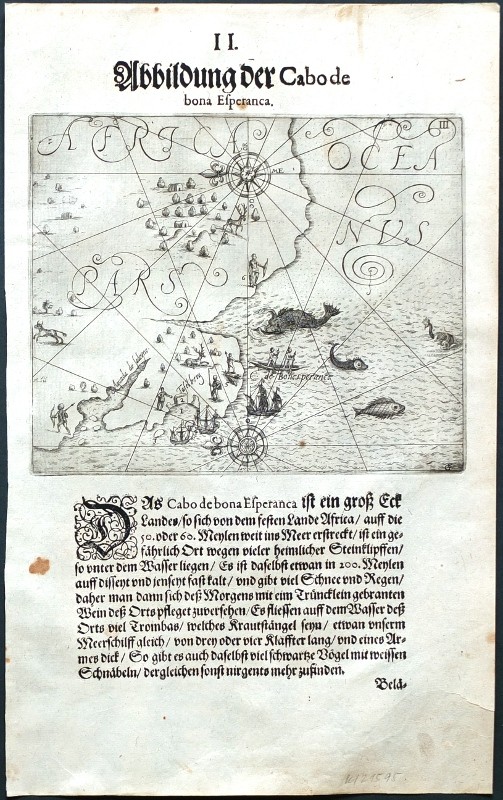 II.
Abbildung der Cabo de
bona Esperanca.
III
AFRICAE
OCEA
NUS
PARS
C. de Bonesperance
DAs Cabo de bona Esperanca ist ein groß Eck
Landes/ so sich von dem festen Lande Africa/ auff die
50. oder 60. Meylen weit ins Meer erstreckt/ ist ein ge-
fährlich Ort wegen vieler heimlicher Steinklipffen/
so vnter dem Wasser liegen/ Es ist daselbst etwan in 200. Meylen
auff disseyt vnd jenseyt fast kalt/ vnd gibt viel Schnee vnd Regen/
daher man dann sich deß Morgens mit eim Trüncklein gebranten
Wein deß Orts pfleget zuversehen/ Es fliessen auff dem Wasser deß
Orts viel Trombas/ welches Krautstängel seyn/ etwan vnserm
Meerschilff gleich/ von drey oder vier Klaffter lang/ vnd eines Ar-
mes dick/ So gibt es auch daselbst viel schwartze Vögel mit weissen
Schnäbeln/ dergleichen sonst nirgents mehr zufinden.
Belä-